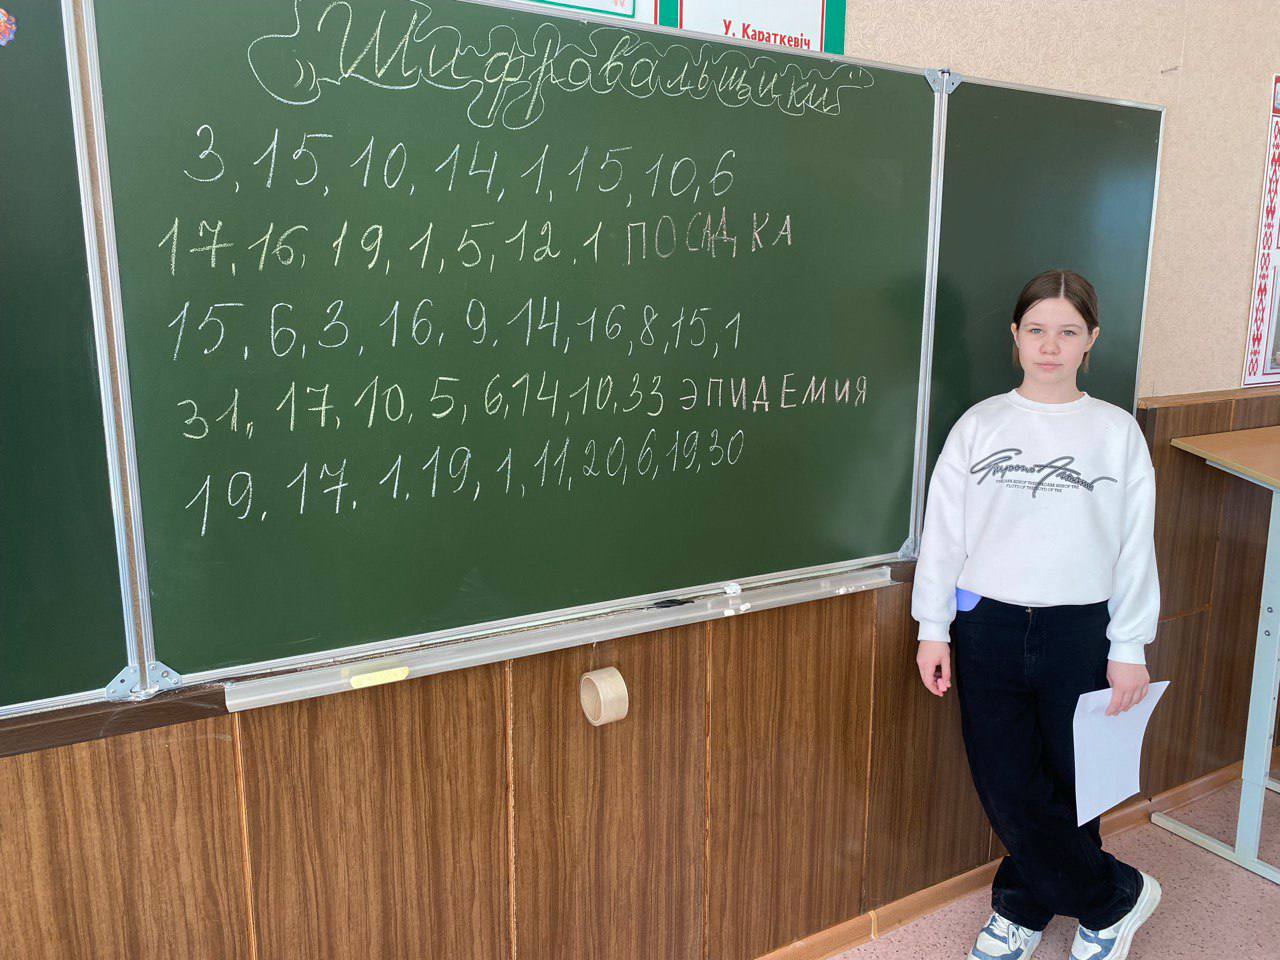 У. Караткевіч
"Шифровальщики"
3, 15, 10, 14, 1, 15, 10, 6
17, 16, 19, 1, 5, 12, 1 ПОСАДКА
15, 6, 3, 16, 9, 14, 16, 8, 15, 1
31, 17, 10, 5, 6, 14, 10, 33 ЭПИДЕМИЯ
19, 17, 1, 19, 1, 11, 20, 6, 19, 30